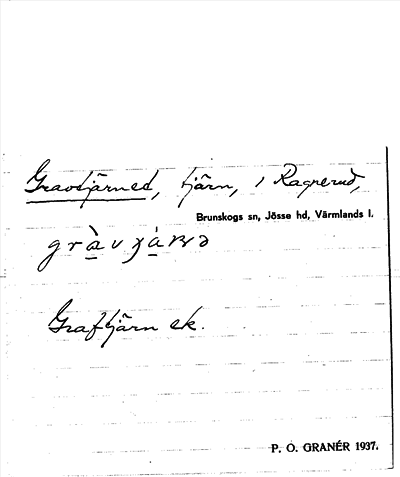 Gravtjärnet, tjärn, i Ragnerud,
Brunskogs sn, Jösse hd, Värmlands l.
Graftjärn ek.
P. O. GRANÉR 1937.